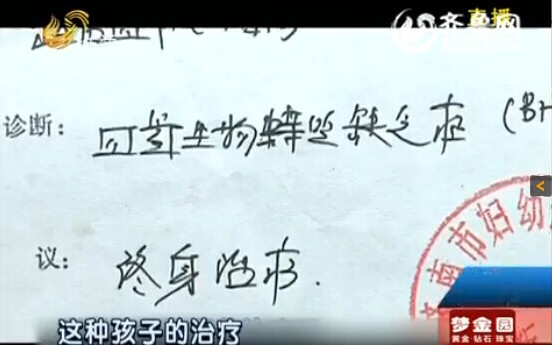 直播
齐鲁网
诊断: 四氢生物蝶呤缺乏症 (BH
议: 终身治疗.
南市妇幼
这种孩子的治疗
梦金园
黄金·钻石·珠宝